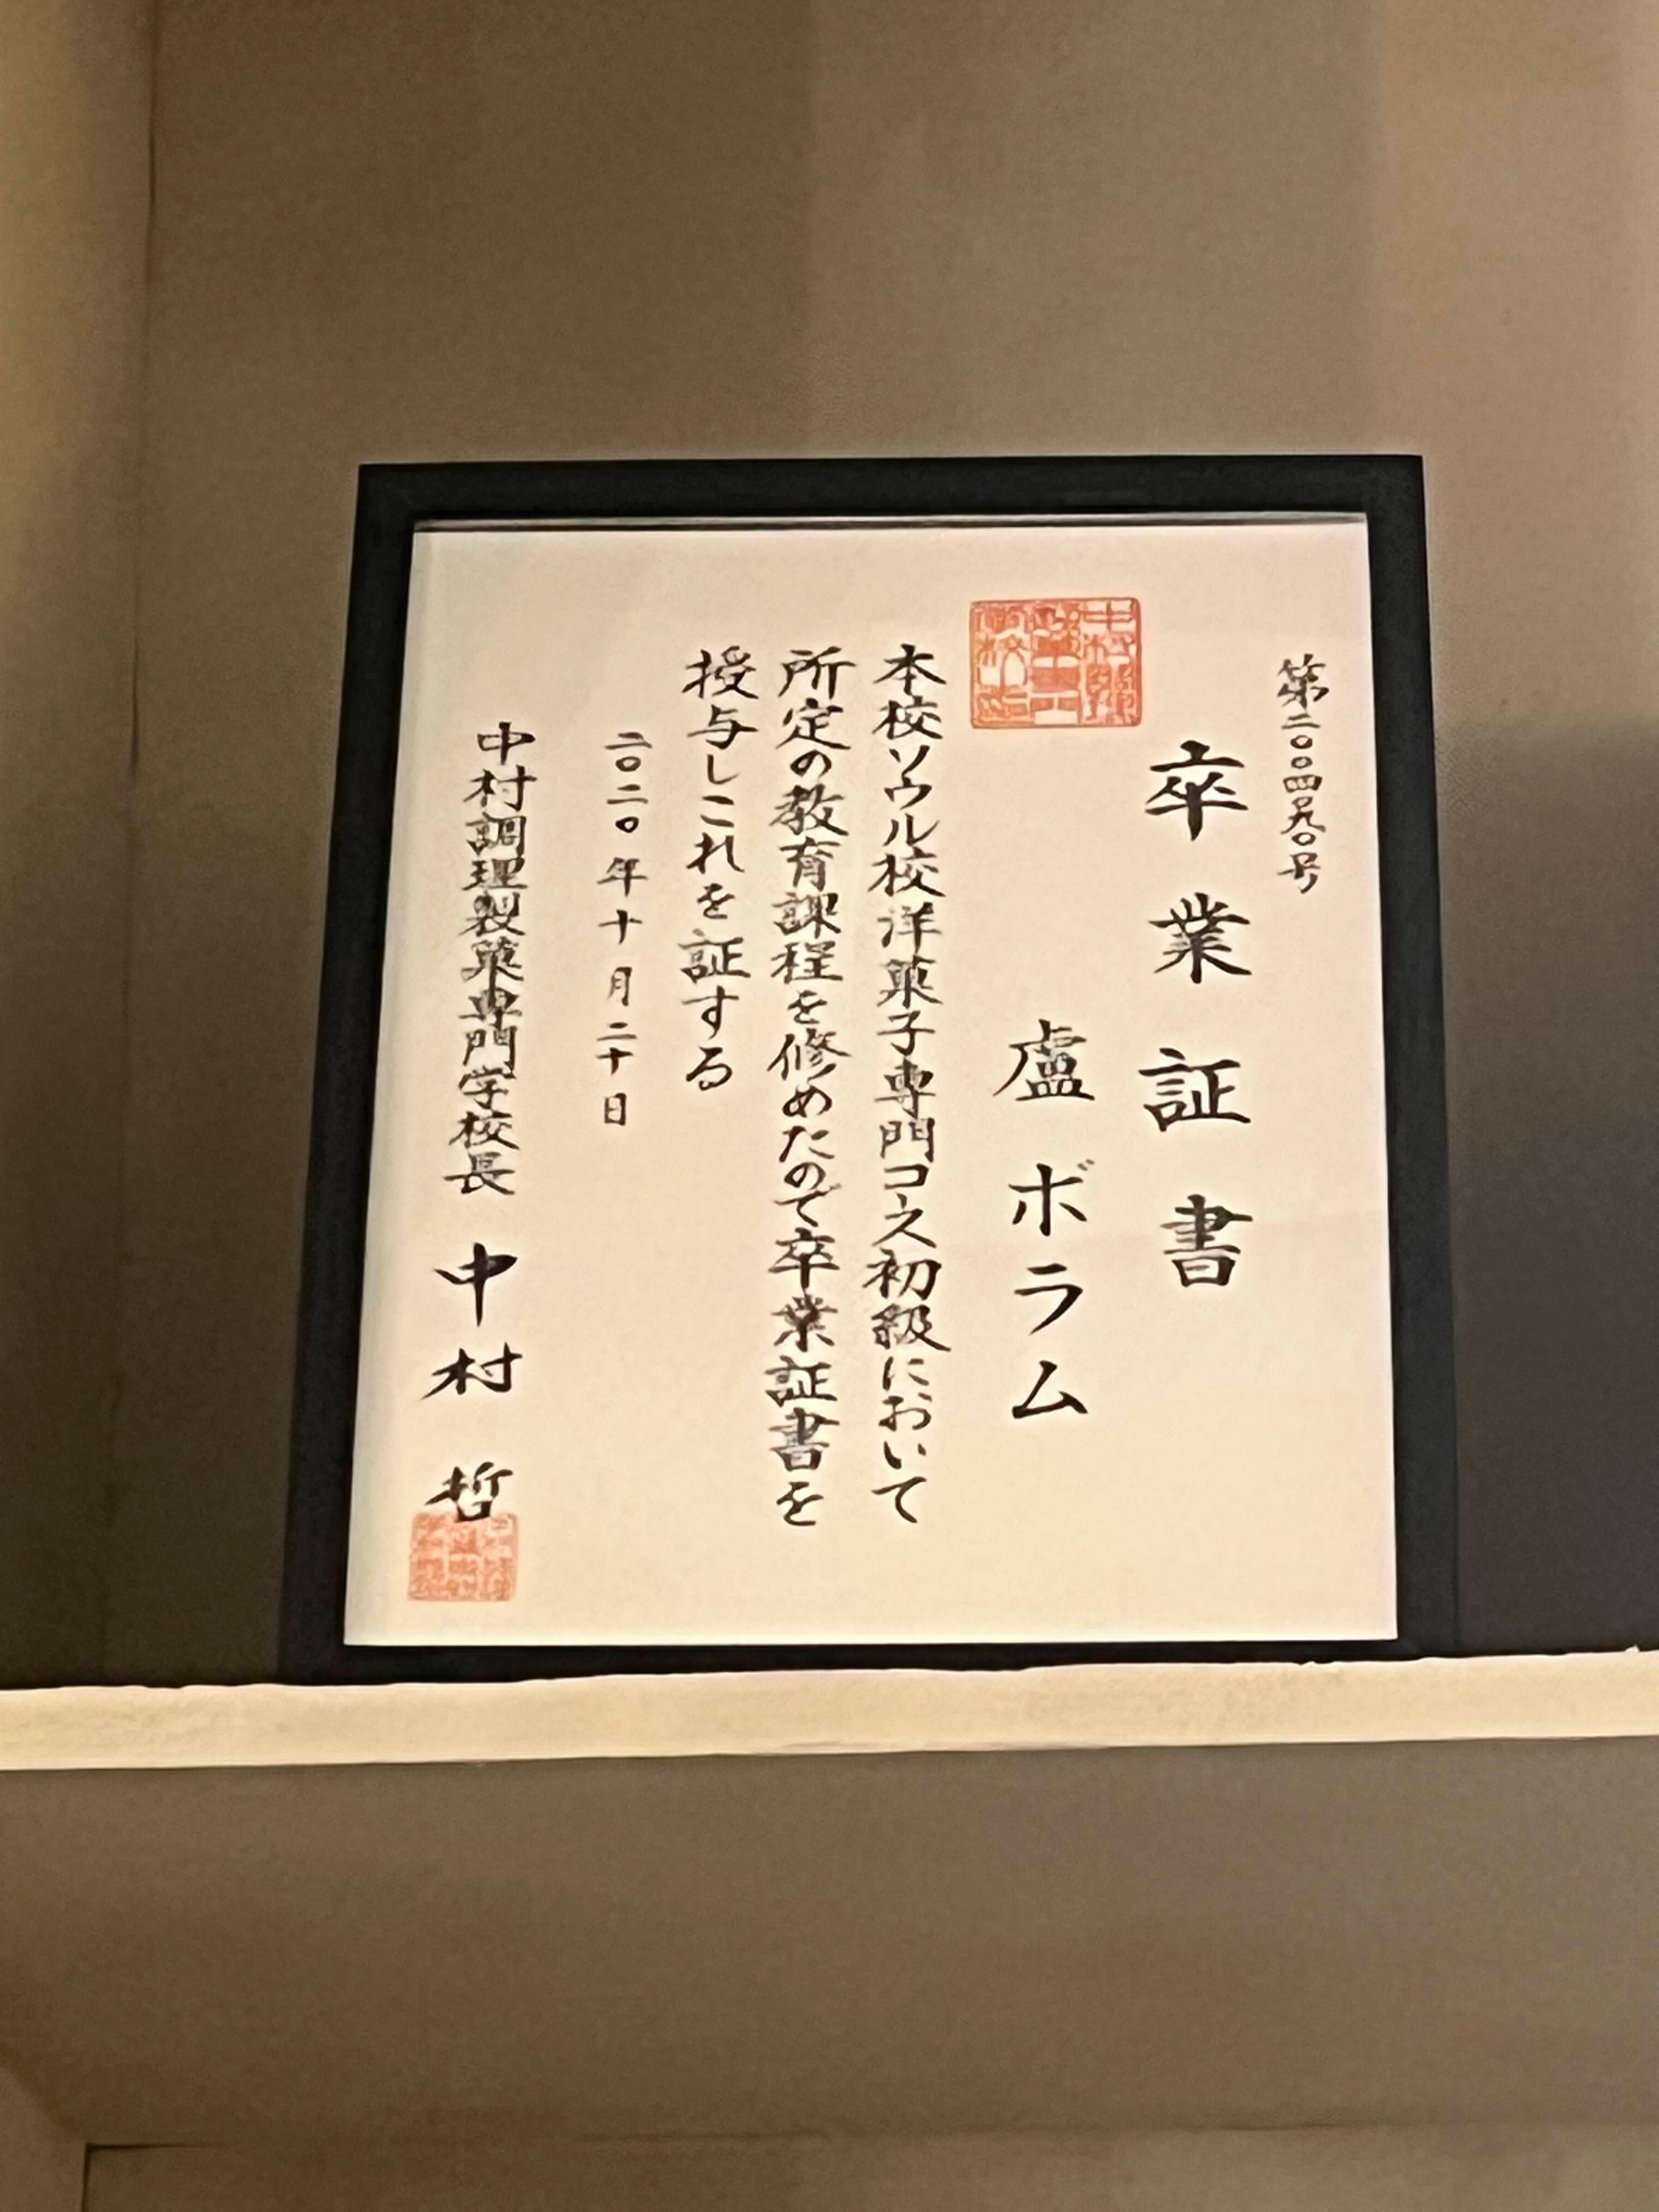 卒業証書
盧ボラム
本校ソウル校洋菓子専門コース初級において
所定の教育課程を修めたので卒業証書を
授与しこれを証する
二〇二〇年十月二十日
中村調理製菓専門学校長 中村 哲